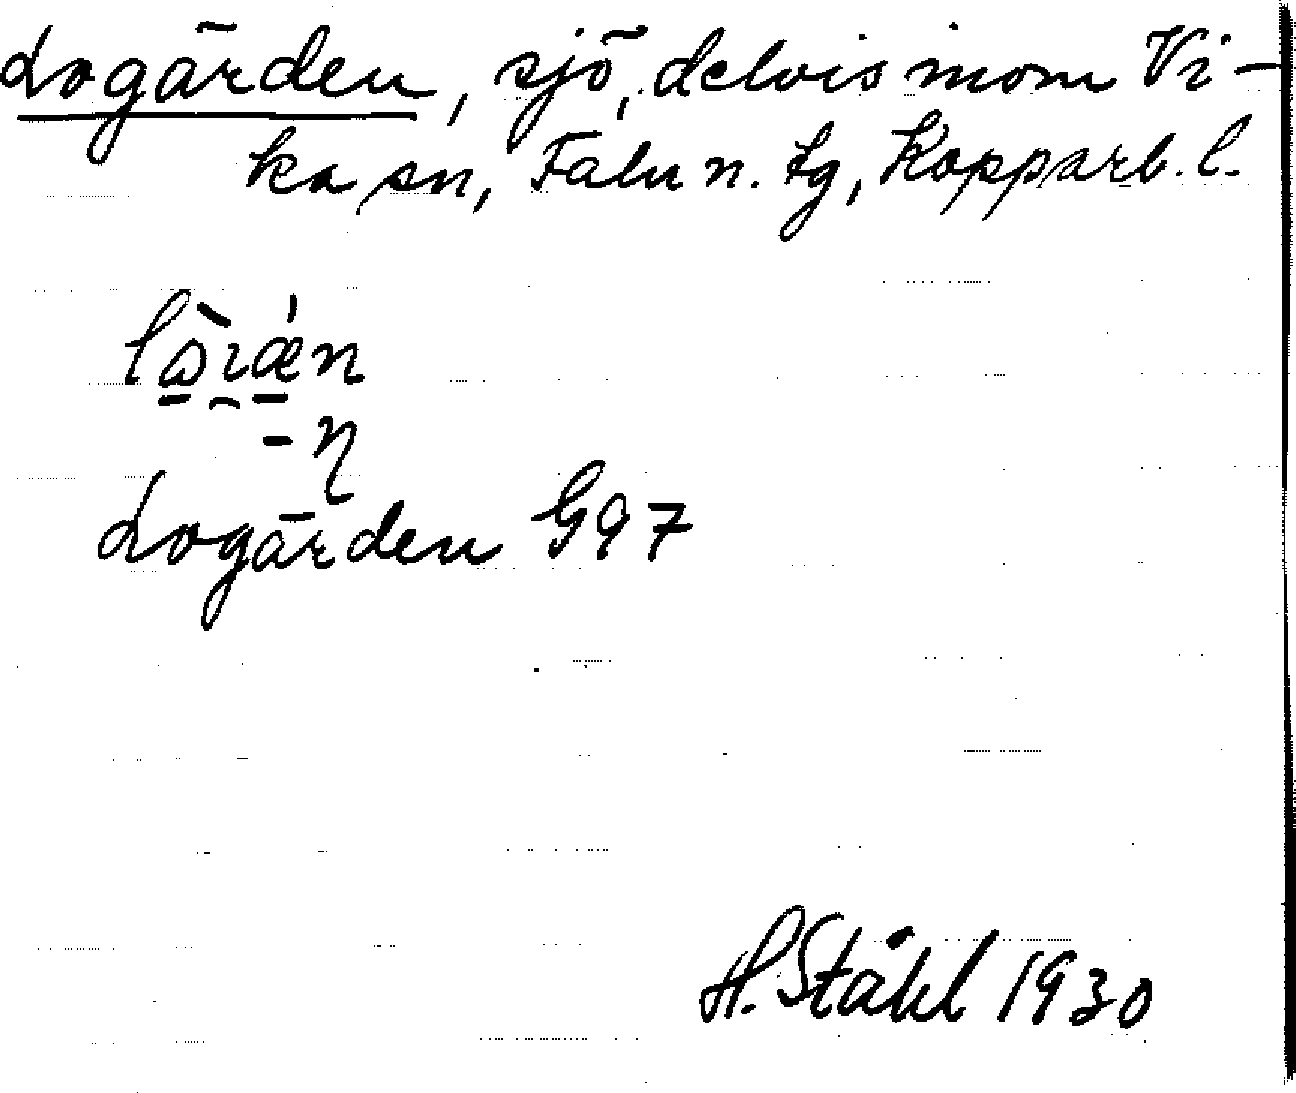 Logärden, sjö, delvis inom Vi-
ka sn, Falu n. tg, Kopparb. l.
Logärden G97
H. Ståhl 1930